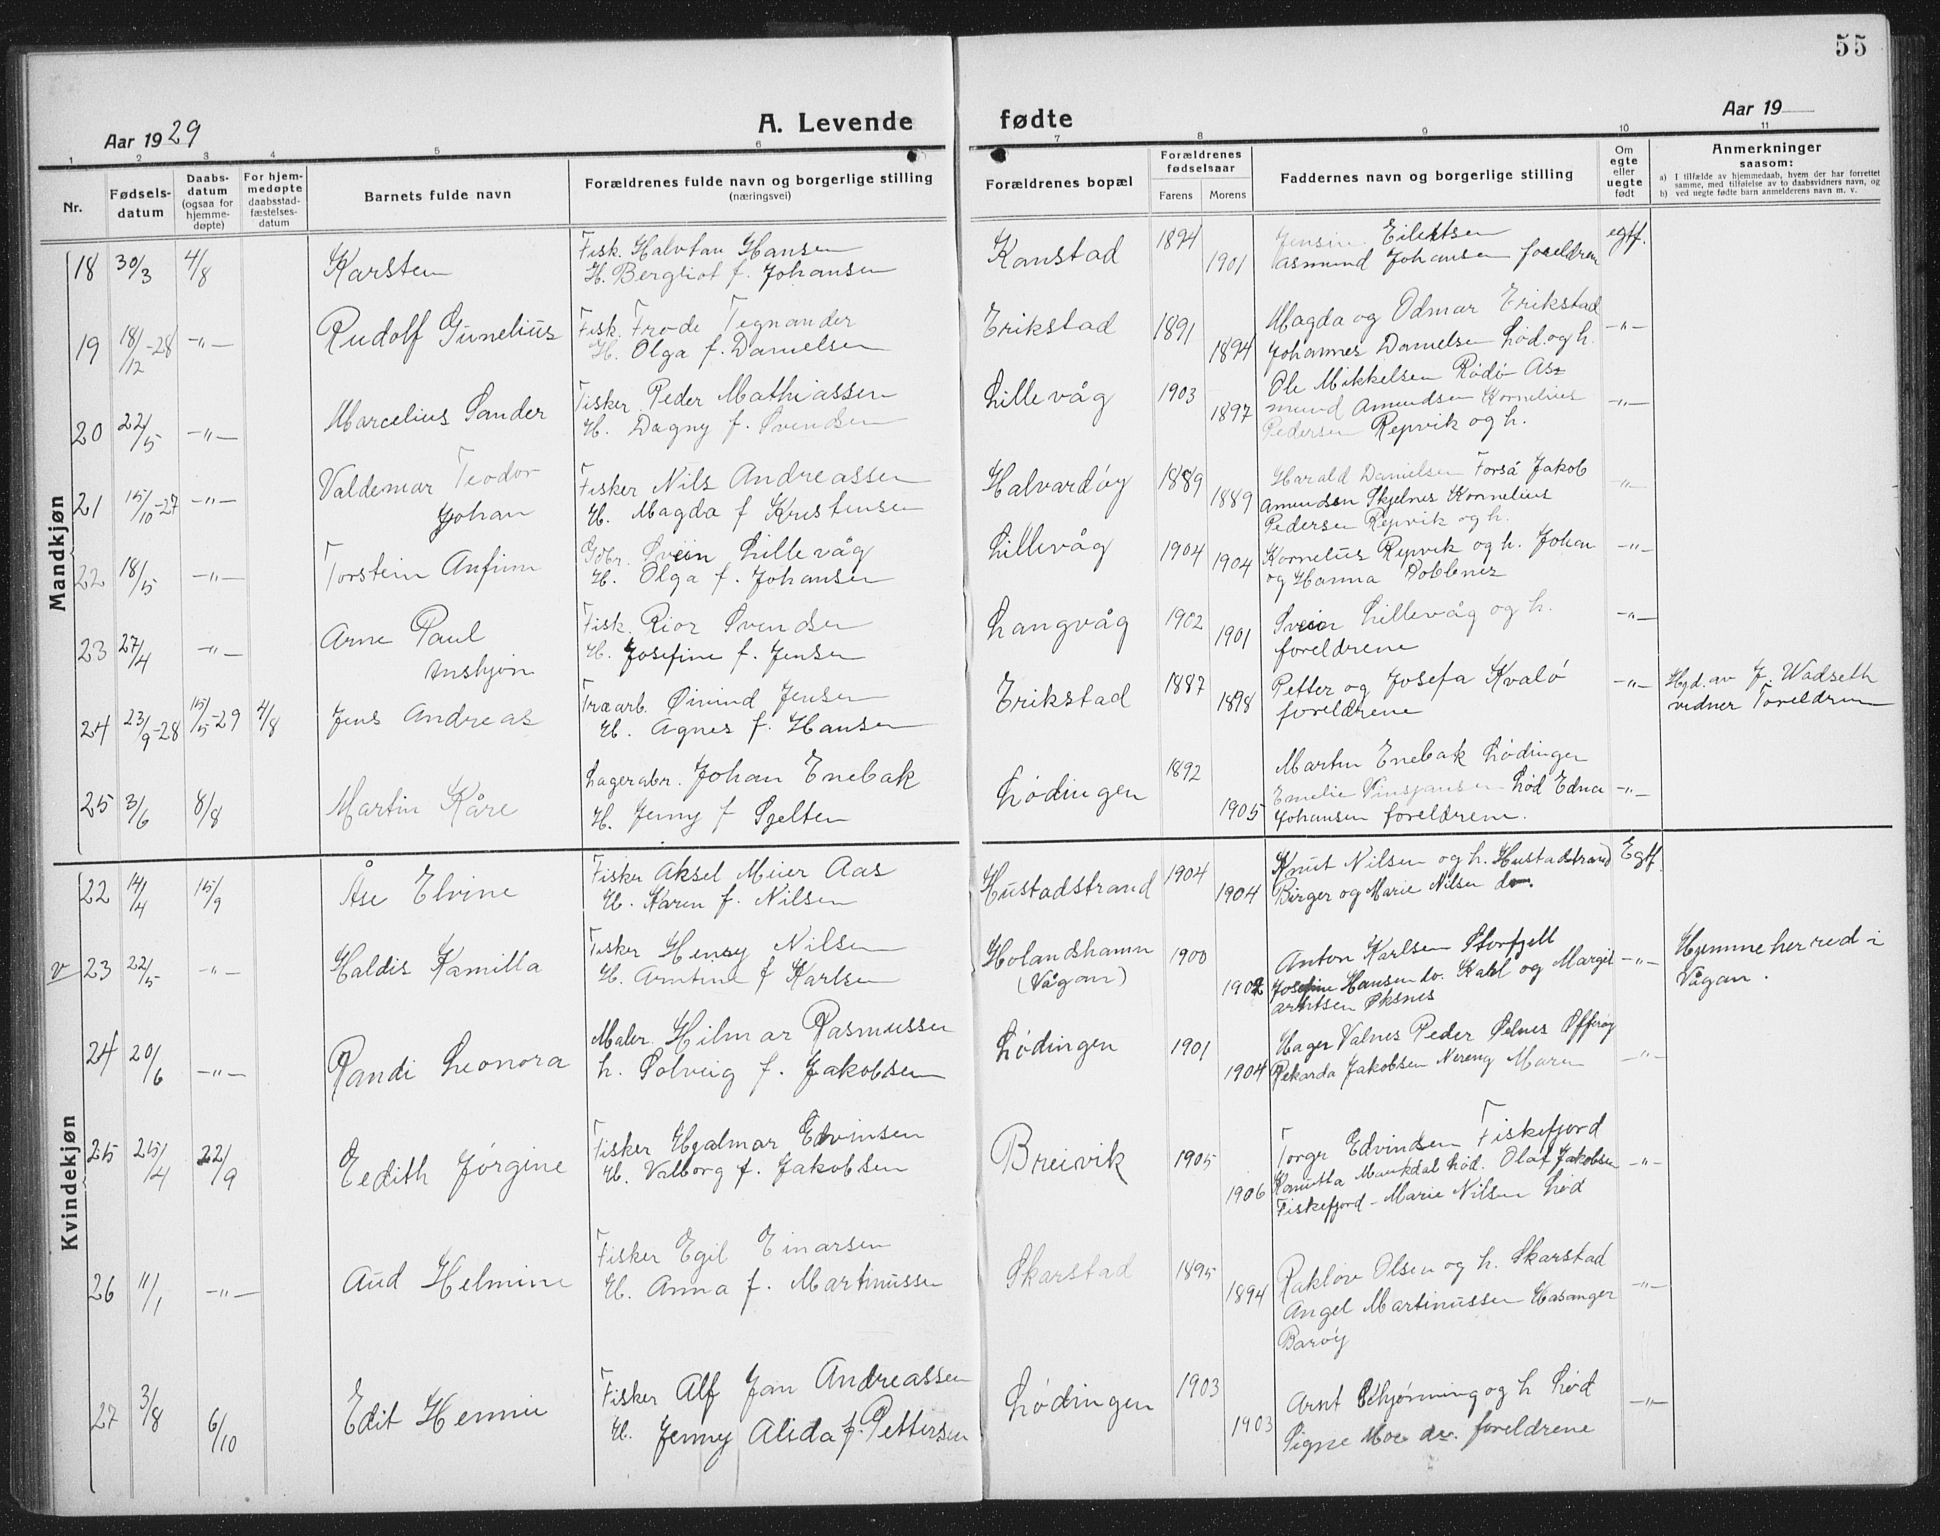 55
Aar 1929
A. Levende fødte
Aar 19
1 2 3 4 5 6 7 8 9 10 11
Nr.
Fødsels-
datum
Daabs-
datum
(ogsaa for
hjemme-
døpte)
For hjem-
medøpte
daabsstad-
fæstelses-
datum
Barnets fulde navn
Forældrenes fulde navn og borgerlige stilling
(næringsvei)
Forældrenes bopæl
Forældrenes
fødselsaar
Farens Morens
Faddernes navn og borgerlige stilling
Om
egte
eller
uegte
født
Anmerkninger
saasom:
a) I tilfælde av hjemmedaab, hvem der har forrettet
samme, med tilføielse av to daabsvidners navn, og
b) ved uegte fødte barn anmelderens navn m. v.
Mandkjøn
18 30/3 4/8 Karsten
Fisk. Halvtan Hansen
H. Bergliot f. Johansen
Kanstad 1894 1901
Jensine Eilertsen
Asmund Johansen foreldrene
egtf.
19 18/12-28 -"- Rudolf Gunelius
Fisk. Frode Tegnander
H. Olga f. Danielsen
Erikstad 1891 1894
Magda og Odmar Erikstad
Johannes Danielsen Lød. og h.
-"-
20 22/5 -"- Marcelius Sander
Fisker Peder Mathiassen
H. Dagny f. Svendsen
Lillevåg 1903 1897
Ole Mikkelsen Rødø As-
mund Amundsen Kornelius
Pedersen Repvik og h.
-"-
21 15/10-27 -"- Valdemar Teodor
Johan
Fisker Nils Andreassen
H. Magda f Kristensen
Halvardøy 1889 1889
Harald Danielsen Forså Jakob
Amundsen Skjelnes Kornelius
Pedersen Repvik og h.
-"-
22 18/5 -"- Torstein Anfinn
Gdbr. Svein Lillevåg
H. Olga f. Johansen
Lillevåg 1904 1904
Kornelius Repvik og h. Johan
og Hanna
-"-
23 27/4 -"- Arne Paul
Ansbjøn
Fisk. Rior Svendsen
H. Josefine f. Jensen
Langvåg 1902 1901
Svein Lillevåg og h.
foreldrene
-"-
24 23/9-28 15/5-29 4/8 Jens Andreas
Træarb. Øivind Jensen
H. Agnes f. Hansen
Erikstad 1887 1898
Petter og Josefa Kvalø
foreldrene
-"-
Hjd. av J. Wadseth
vidner Foreldrene
25 3/6 8/8 Martin Kåre
Lagerabr. Johan Enebak
H. Jenny f Sjelten
Lødingen 1892 1905
Martin Enebak Lødingen
Emelie Lød Edna
Johansen foreldrene.
-"-
Kvindekjøn
22 14/4 15/9 Åse Elvine
Fisker Aksel Meier Aas
H. Karen f. Nilsen
Hustadstrand 1904 1904
Knut Nilsen og h. Hustadstrand
Birger og Marie Nilsen do.
Egtf.
v 23 22/5 -"- Haldis Kamilla
Fisker Henry Nilsen
H. Arntine f Karlsen
Holandshamn
(Vågan)
1900 1902
Anton Karlsen Storfjell
Josefine Hansen do. Karl og Margit
Arntsen Øksnes
-"-
Hjemmeherred i
Vågan.
24 20/6 -"- Randi Leonora
Maler. Hilmar Rasmussen
h. Solveig f. Jakobsen
Lødingen 1901 1904
Hager Valnes Peder Selnes Offerøy
Rekarda Jakobsen Nereng Maren
-"-
25 25/4 22/9 Eedith Jørgine
Fisker Hjalmar Edvinsen
H. Valborg f. Jakobsen
Breivik 1905 1906
Torge Edvindsen Fiskefjord
Lød. Olaf Jakobsen
Fiskefjord - Marie Nilsen Lød
-"-
26 11/1 -"- Aud Helmine
Fisker Egil Einarsen
H. Anna f. Martinussen
Skarstad 1895 1894
Olsen og h. Skarstad
Angel Martinussen
Barøy
-"-
27 3/8 6/10 Edit Hennie
Fisker Alf Jan Andreassen
H. Jenny Alida f. Pettersen
Lødingen 1903 1903
Arnt og h Lød
Signe Moe do. foreldrene
-"-